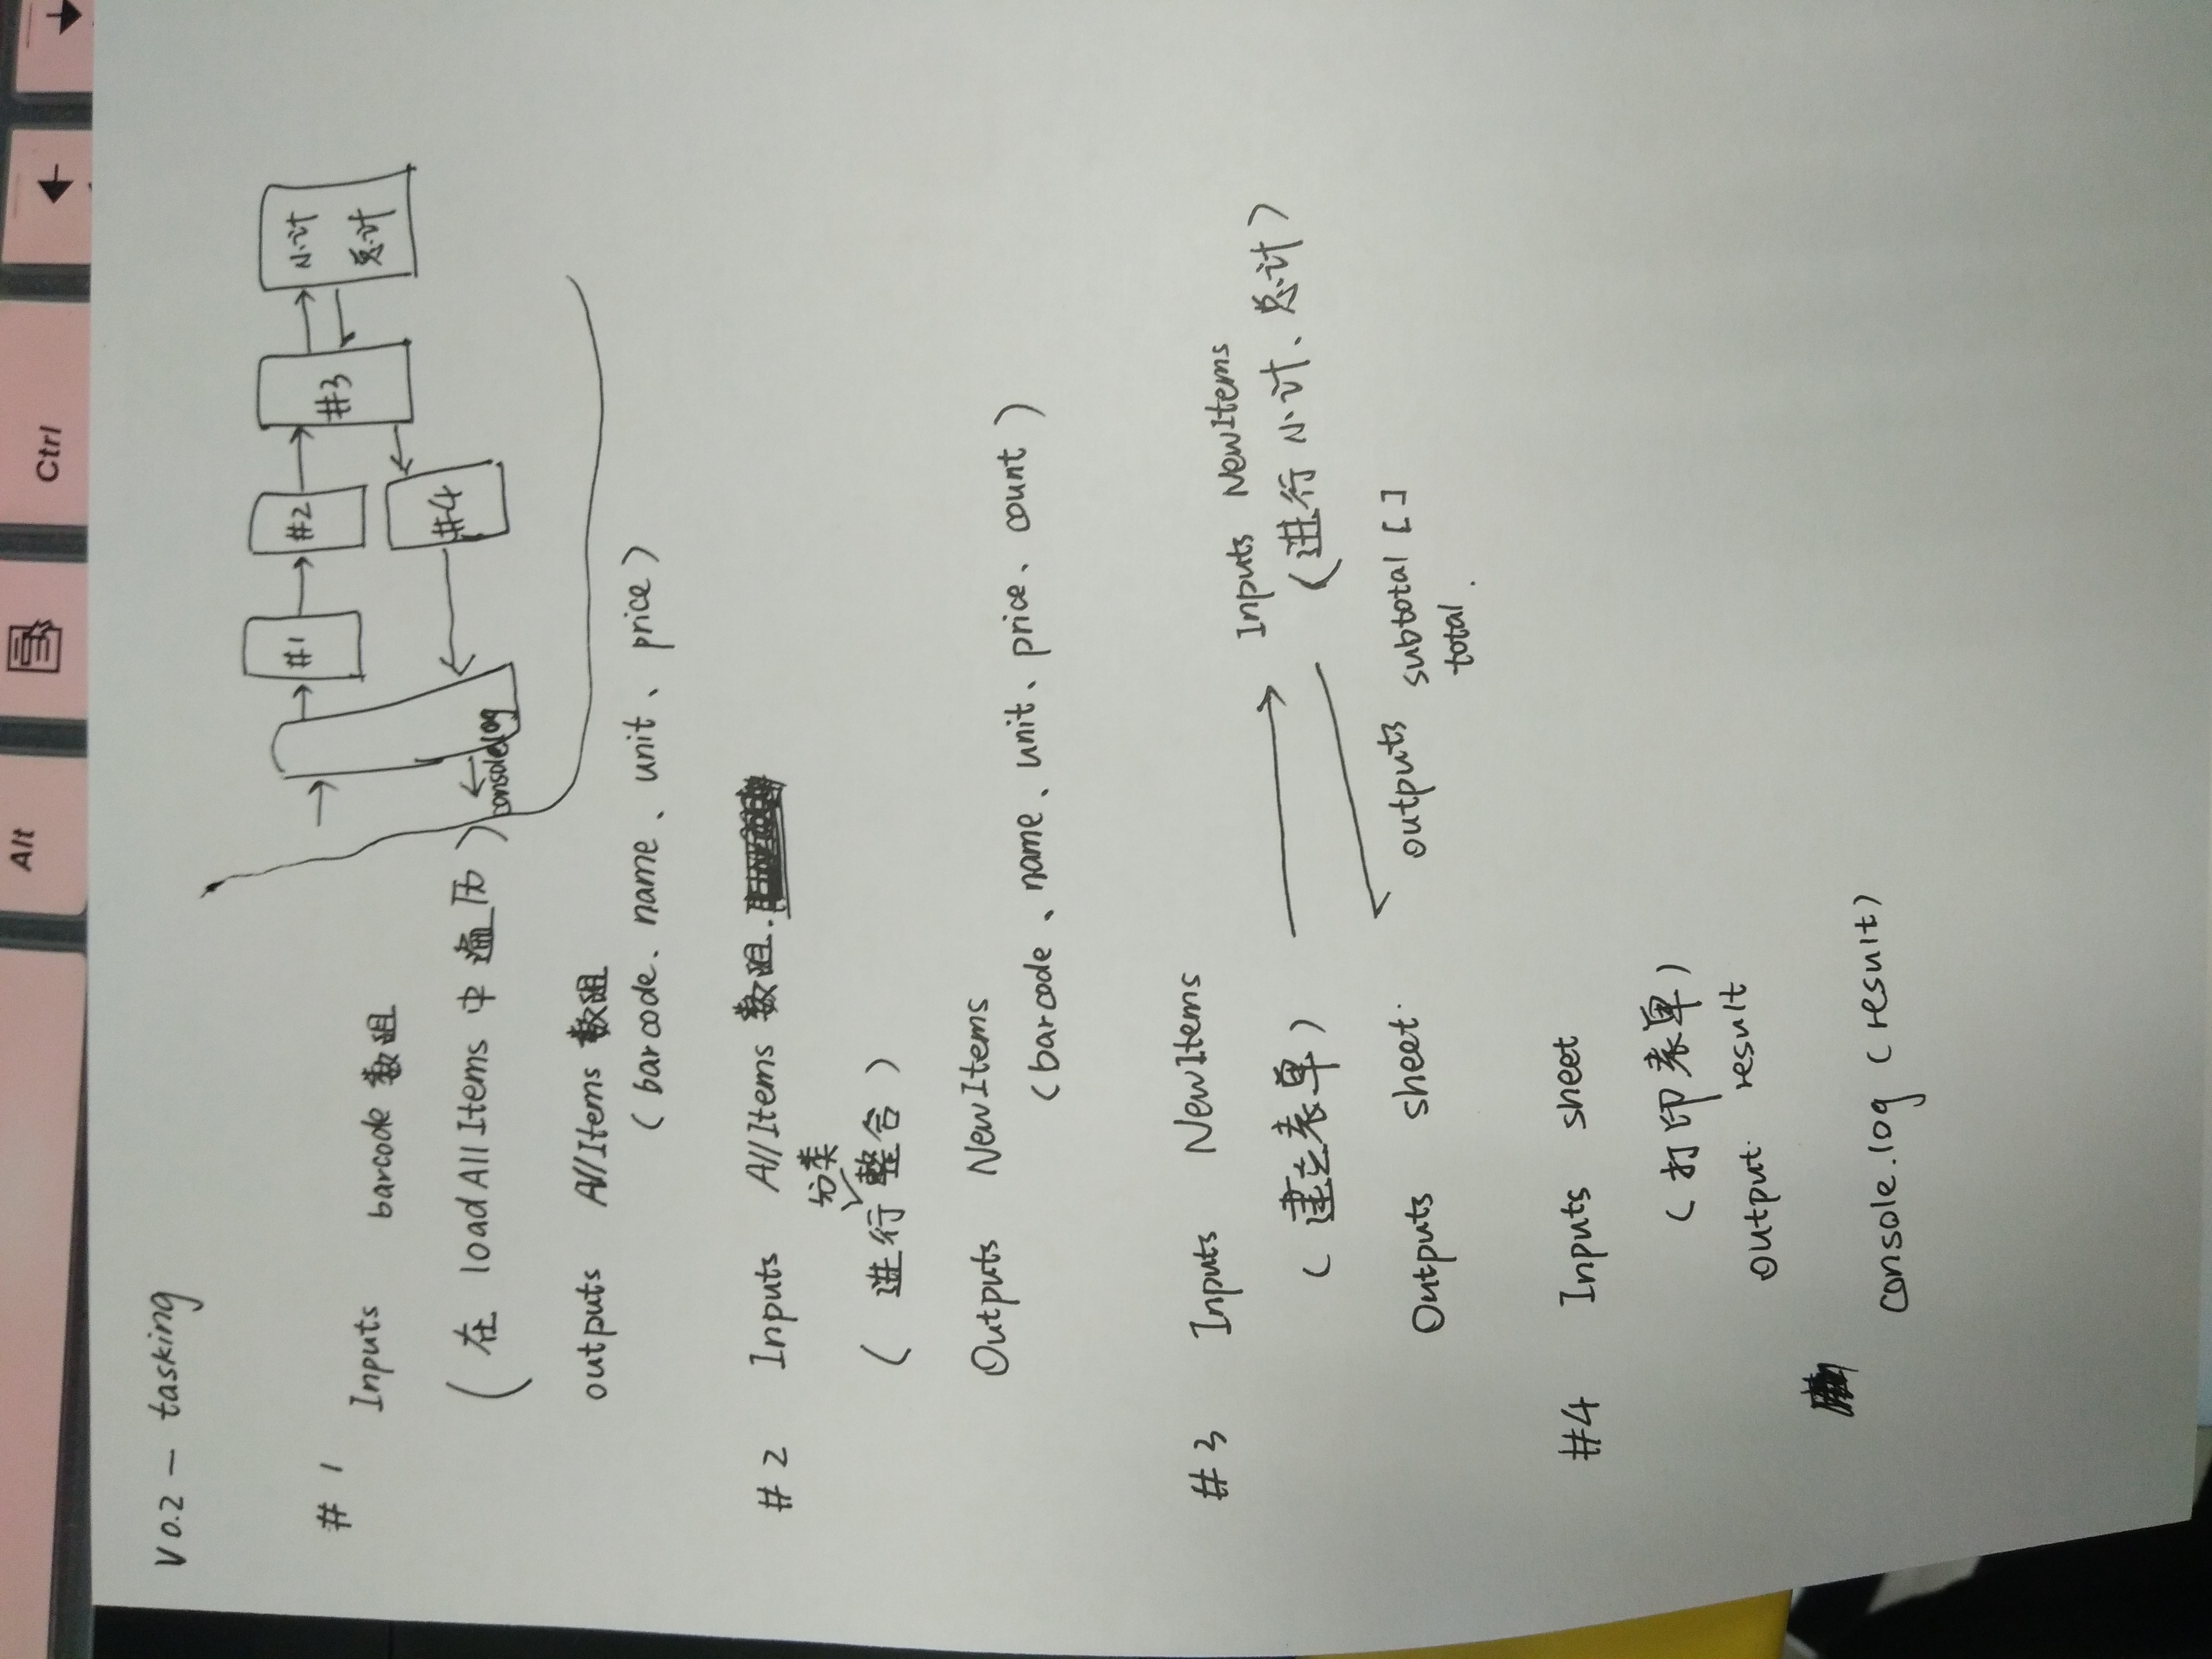 Alt
Ctrl
V 0.2 - tasking
#1
#2
#3
小计
总计
#4
console.log
# 1
Inputs barcode 数组
(在 loadAllItems 中遍历)
outputs AllItems 数组
(barcode、name、unit、price)
# 2 Inputs AllItems 数组.
分类
(进行整合)
Outputs NewItems
(barcode、name、unit、price、count)
# 3 Inputs NewItems
(建立表单)
Outputs sheet.
Inputs NewItems
(进行小计、总计)
outputs subtotal []
total.
#4 Inputs sheet
(打印表单)
output. result
console.log (result)